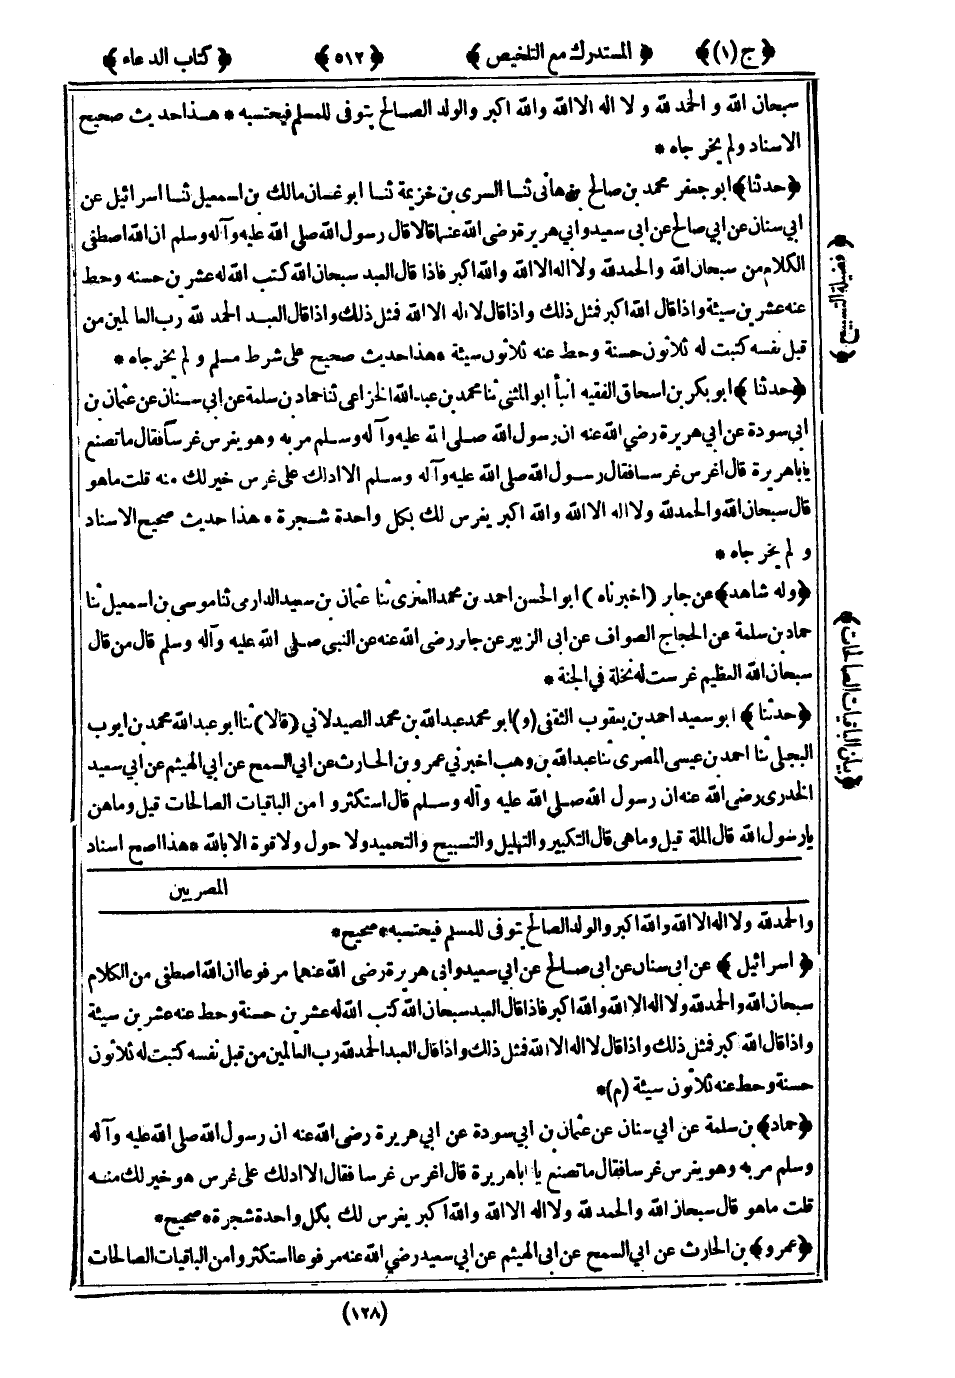 ﴿ج(١)﴾ ﴿المستدرك مع التلخيص﴾ ﴿٥١٢﴾ ﴿كتاب الدعاء﴾
سبحان الله و الحمد لله و لا اله الا الله والله اكبر والولد الصالح يتوفى للمسلم فيحتسبه * هذا حديث صحيح
الاسناد ولم يخرجاه *
﴿حدثنا﴾ ابو جعفر محمد بن صالح بن هانئ ثنا السرى بن خزيمة ثنا ابو غسان مالك بن اسمعيل ثنا اسرائيل عن
ابي سنان عن ابي صالح عن ابى سعيد وابي هريرة رضى الله عنهما قالا قال رسول الله صلى الله عليه وآله وسلم ان الله اصطفى
الكلام من سبحان الله والحمد لله ولا اله الا الله والله اكبر فاذا قال العبد سبحان الله كتب الله له عشرين حسنه وحط
عنه عشرين سيئة واذا قال الله اكبر فمثل ذلك واذا قال لا اله الا الله فمثل ذلك واذا قال العبد الحمد لله رب العالمين من
قبل نفسه كتبت له ثلاثون حسنة وحط عنه ثلاثون سيئة * هذا حديث صحيح على شرط مسلم و لم يخرجاه *
﴿حدثنا﴾ ابو بكر بن اسحاق الفقيه انبأ ابو المثنى ثنا محمد بن عبد الله الخزاعى ثنا حماد بن سلمة عن ابي سنان عن عثمان بن
ابي سودة عن ابي هريرة رضي الله عنه ان رسول الله صلى الله عليه وآله وسلم مر به وهو يغرس غرسا فقال ما تصنع
يا باهريرة قال اغرس غرسا فقال رسول الله صلى الله عليه وآله وسلم الا ادلك على غرس خير لك منه قلت ما هو
قال سبحان الله والحمد لله ولا اله الا الله والله اكبر يغرس لك بكل واحدة شجرة * هذا حديث صحيح الاسناد
و لم يخرجاه *
﴿وله شاهد﴾ عن جابر (اخبرناه) ابو الحسن احمد بن محمد العنزى ثنا عثمان بن سعيد الدارمى ثنا موسى بن اسمعيل ثنا
حماد بن سلمة عن الحجاج الصواف عن ابى الزبير عن جابر رضى الله عنه عن النبي صلى الله عليه وآله وسلم قال من قال
سبحان الله العظيم غرست له نخلة في الجنة *
﴿حدثنا﴾ ابو سعيد احمد بن يعقوب الثقفى (و) ابو محمد عبد الله بن محمد الصيدلاني (قالا) ثنا ابو عبد الله محمد بن ايوب
البجلى ثنا احمد بن عيسى المصرى ثنا عبد الله بن وهب اخبرني عمرو بن الحارث عن ابي السمح عن ابي الهيثم عن ابي سعيد
الخدرى رضى الله عنه ان رسول الله صلى الله عليه وآله وسلم قال استكثروا من الباقيات الصالحات قيل وما هن
يا رسول الله قال الملة قيل وما هى قال التكبير والتهليل والتسبيح والتحميد ولا حول ولا قوة الا بالله * هذا اصح اسناد
المصريين
والحمد لله ولا اله الا الله والله اكبر والولد الصالح يتوفى للمسلم فيحتسبه * صحيح *
﴿اسرائيل﴾ عن ابى سنان عن ابى صالح عن ابي سعيد وابى هريرة رضى الله عنهما مرفوعا ان الله اصطفى من الكلام
سبحان الله والحمد لله ولا اله الا الله والله اكبر فاذا قال العبد سبحان الله كتب الله له عشرين حسنة وحط عنه عشرين سيئة
واذا قال الله كبر فمثل ذلك واذا قال لا اله الا الله فمثل ذلك واذا قال العبد الحمد لله رب العالمين من قبل نفسه كتبت له ثلاثون
حسنة وحط عنه ثلاثون سيئة (م) *
﴿حماد﴾ بن سلمة عن ابي سنان عن عثمان بن ابي سودة عن ابي هريرة رضى الله عنه ان رسول الله صلى الله عليه وآله
وسلم مر به وهو يغرس غرسا فقال ما تصنع يا اباهريرة قال اغرس غرسا فقال الا ادلك على غرس هو خير لك منه
قلت ما هو قال سبحان الله والحمد لله ولا اله الا الله والله اكبر يغرس لك بكل واحدة شجرة * صحيح *
﴿عمرو﴾ بن الحارث عن ابي السمح عن ابى الهيثم عن ابي سعيد رضي الله عنه مرفوعا استكثروا من الباقيات الصالحات
﴿بيان الباقيات الصالحات﴾
(١٢٨)